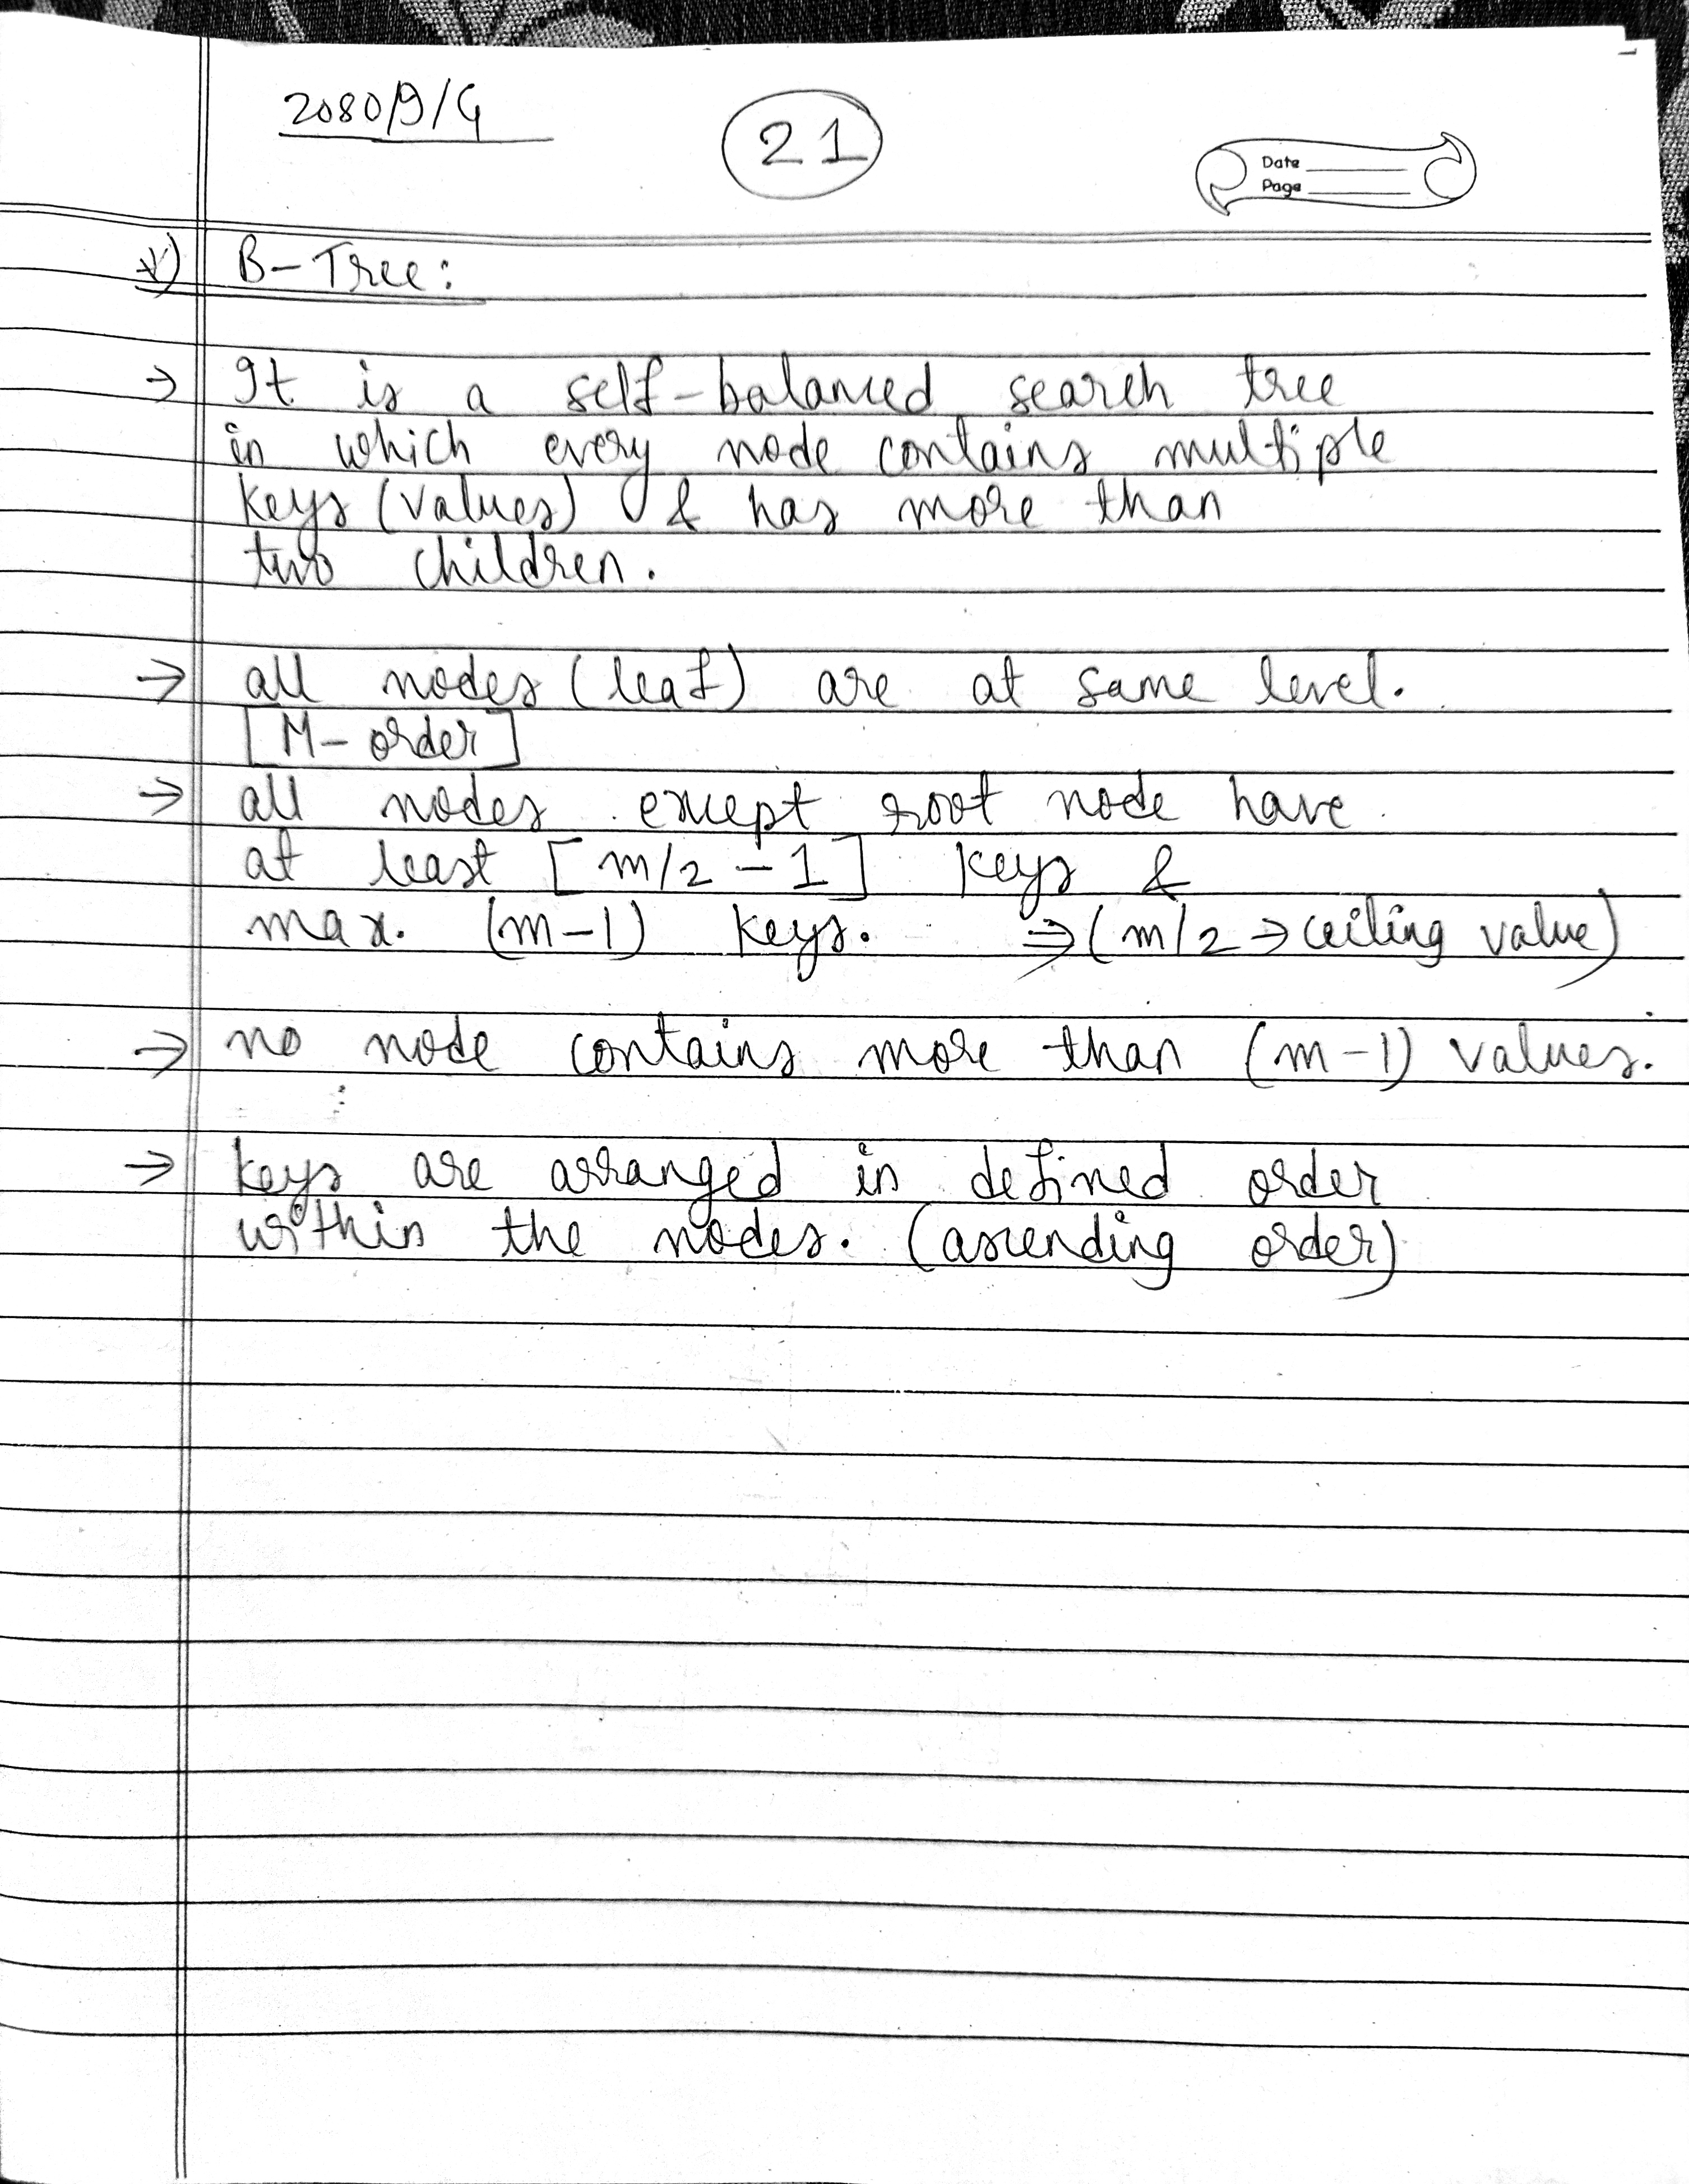 2080/9/4
21
Date
Page
v) B-Tree:
→ It is a self-balanced search tree
in which every node contains multiple
keys (values) & has more than
two children.
→ all nodes (leaf) are at same level.
[M-order]
→ all nodes except root node have
at least [m/2 - 1] keys &
max. (m-1) keys. ⇒ (m/2 → ceiling value)
→ no node contains more than (m-1) values.
→ keys are arranged in defined order
within the nodes. (ascending order)